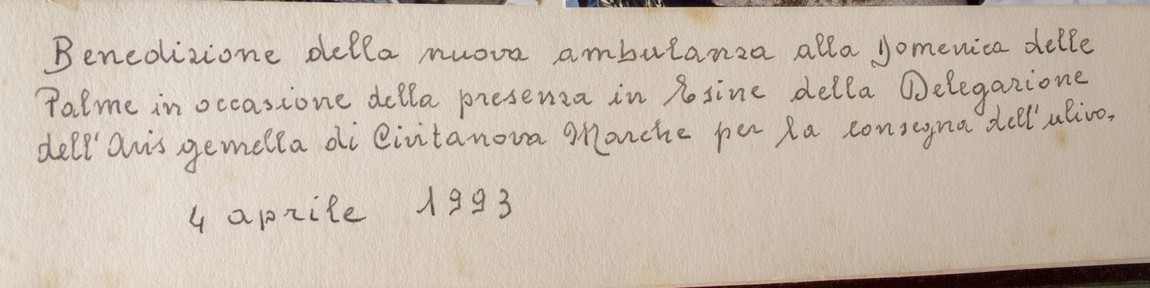 Benedizione della nuova ambulanza alla Domenica delle
Palme in occasione della presenza in Esine della Delegazione
dell'Avis gemella di Civitanova Marche per la consegna dell'ulivo.
4 aprile 1993